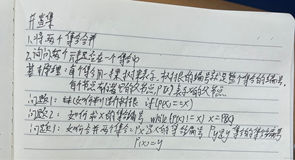 并查集
1.将两个集合合并
2.询问两个元素是否在一个集合中
基本原理：每个集合用一棵树来表示。树根的编号就是整个集合的编号。
每个节点存储它的父节点，p[x]表示x的父节点
问题1：如何判断树根 if(p[x]==x)
问题2：如何求x的集合编号 while(p[x]!=x) x=p[x]
问题3：如何合并两个集合：px是x的集合编号 py是y的集合编号
p[x]=y